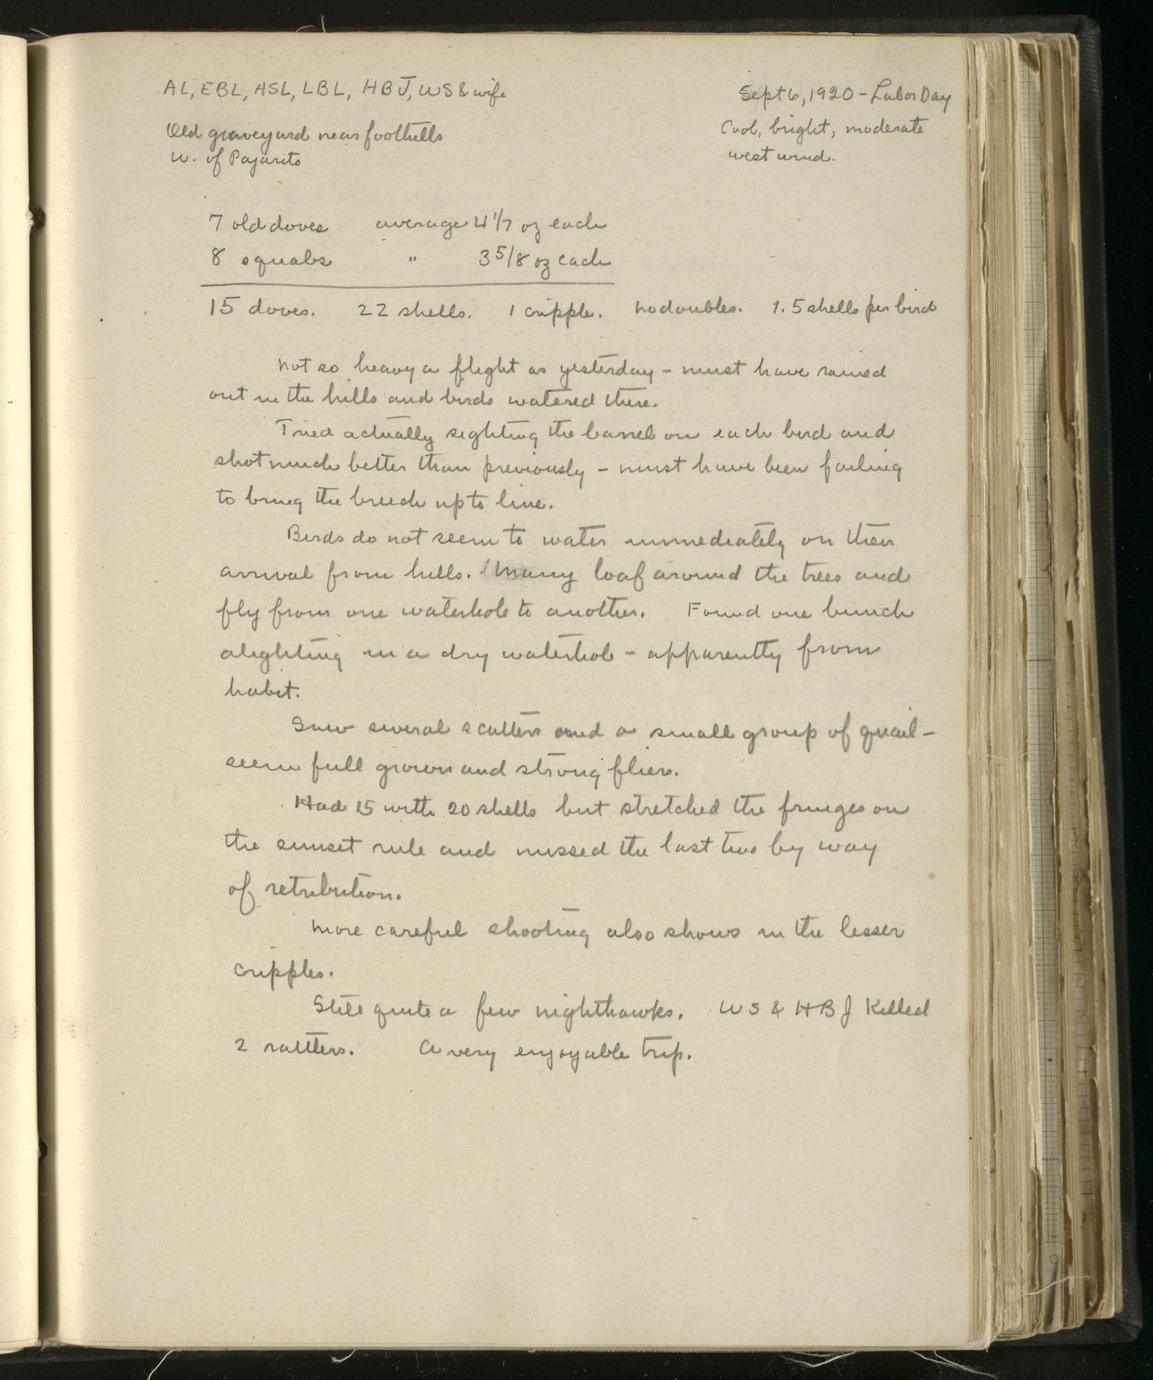 AL, EBL, ASL, LBL, HBJ, WS & wife
Sept 6, 1920 - Labor Day
Old graveyard near foothills
Cool, bright, moderate
W. of Pajarito
west wind.
7 old doves average 4 1/7 oz each
8 squabs " 3 5/8 oz each
15 doves. 22 shells. 1 cripple. No doubles. 1.5 shells per bird
Not so heavy a flight as yesterday - must have rained
out in the hills and birds watered there.
Tried actually sighting the barrel on each bird and
shot much better than previously - must have been failing
to bring the breech up to line.
Birds do not seem to water immediately on their
arrival from hills. Many loaf around the trees and
fly from one waterhole to another. Found one bunch
alighting in a dry waterhole - apparently from
habit.
Saw several scatters and a small group of quail -
seem full grown and strong fliers.
Had 15 with 20 shells but stretched the fringes on
the sunset rule and missed the last two by way
of retribution.
More careful shooting also shows in the lesser
cripples.
Still quite a few nighthawks. WS & HBJ killed
2 rattlers. A very enjoyable trip.